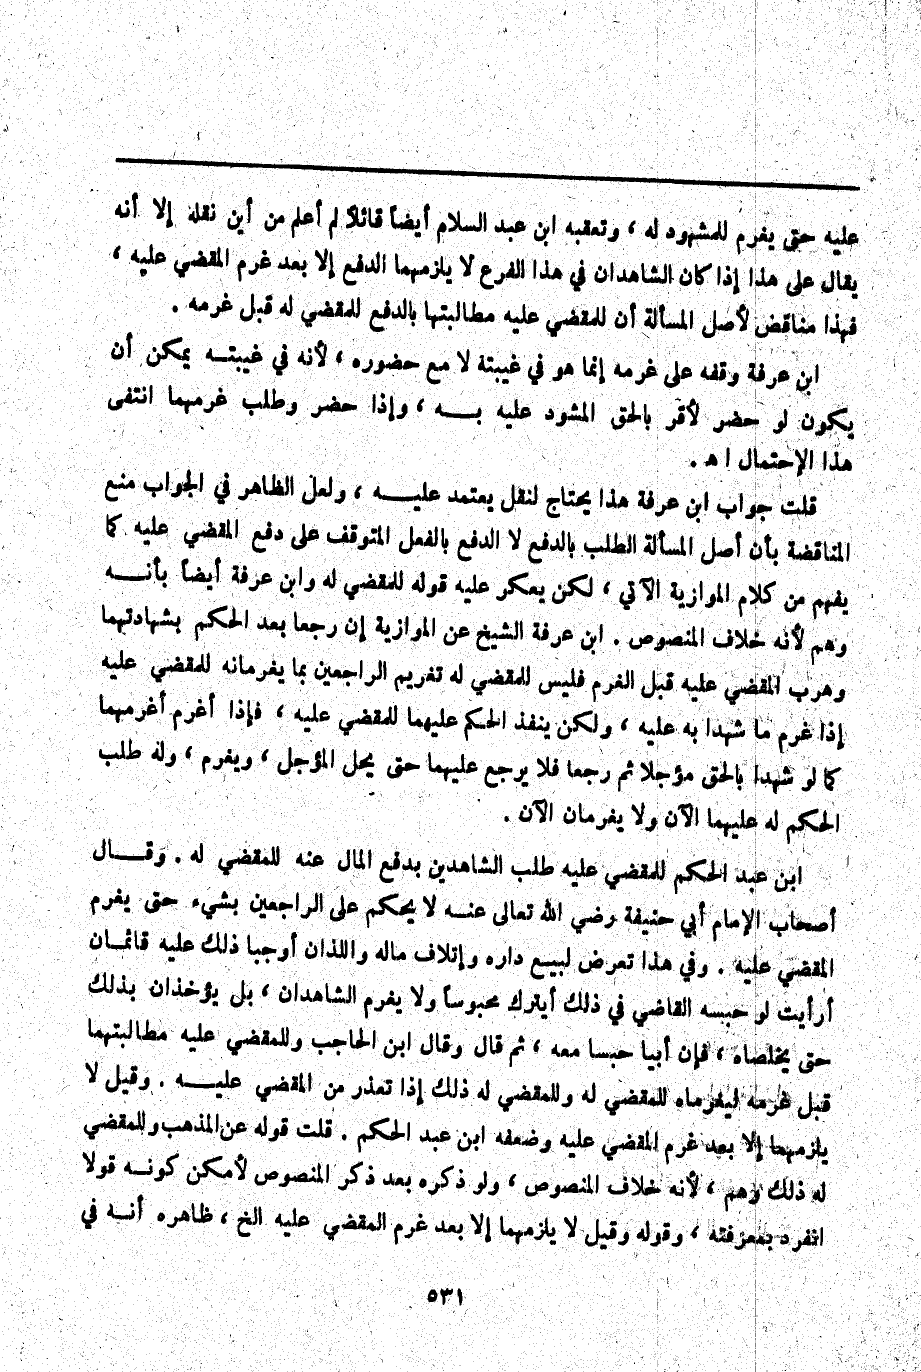 عليه حتى يغرم للمشهود له ، وتعقبه ابن عبد السلام أيضاً قائلا لم أعلم من أين نقله إلا أنه
يقال على هذا إذا كان الشاهدان في هذا الفرع لا يلزمهما الدفع إلا بعد غرم المقضي عليه ،
فهذا مناقض لأصل المسألة أن للمقضي عليه مطالبتها بالدفع للمقضي له قبل غرمه .
ابن عرفة وقفه على غرمه إنما هو في غيبتة لا مع حضوره ، لأنه في غيبتــه يمكن أن
يكون لو حضر لأقر بالحق المشود عليه بـــه ، وإذا حضر وطلب غرمهما انتفى
هذا الإحتمال ا ه .
قلت جواب ابن عرفة هذا يحتاج لنقل يعتمد عليـــه ، ولعل الظاهر في الجواب منع
المناقضة بأن أصل المسألة الطلب بالدفع لا الدفع بالفعل المتوقف على دفع المقضي عليه كما
يفهم من كلام الموازية الآتي ، لكن يعكر عليه قوله للمقضي له وابن عرفة أيضاً بأنـــه
وهم لأنه خلاف المنصوص . ابن عرفة الشيخ عن الموازية إن رجعا بعد الحكم بشهادتهما
وهرب المقضي عليه قبل الغرم فليس للمقضي له تغريم الراجعين بما يغرمانه للمقضي عليه
إذا غرم ما شهدا به عليه ، ولكن ينفذ الحكم عليهما للمقضي عليه ، فإذا أغرم أغرمهما
كما لو شهدا بالحق مؤجلا ثم رجعا فلا يرجع عليهما حتى يحل المؤجل ، ويغرم ، وله طلب
الحكم له عليهما الآن ولا يغرمان الآن .
ابن عبد الحكم للمقضي عليه طلب الشاهدين بدفع المال عنه للمقضي له . وقـــال
أصحاب الإمام أبي حنيفة رضي الله تعالى عنــه لا يحكم على الراجعين بشيء حتى يغرم
المقضي عليه . وفي هذا تعرض لبيـع داره وإتلاف ماله واللذان أوجبا ذلك عليه قائمـان
أرأيت لو حبسه القاضي في ذلك أيترك محبوساً ولا يغرم الشاهدان ، بل يؤخذان بذلك
حتى يخلصاه ، فإن أبيا حبسا معه ، ثم قال وقال ابن الحاجب وللمقضي عليه مطالبتهما
قبل غرمه ليغرماه للمقضي له وللمقضي له ذلك إذا تعذر من المقضي عليـــه . وقيل لا
يلزمهما إلا بعد غرم المقضي عليه وضعفه ابن عبد الحكم . قلت قوله عن المذهب وللمقضي
له ذلك وهم ، لأنه خلاف المنصوص ، ولو ذكره بعد ذكر المنصوص لأمكن كونــه قولا
انفرد بمعرفته ، وقوله وقيل لا يلزمهما إلا بعد غرم المقضي عليه الخ ، ظاهره أنــه في
٥٣١